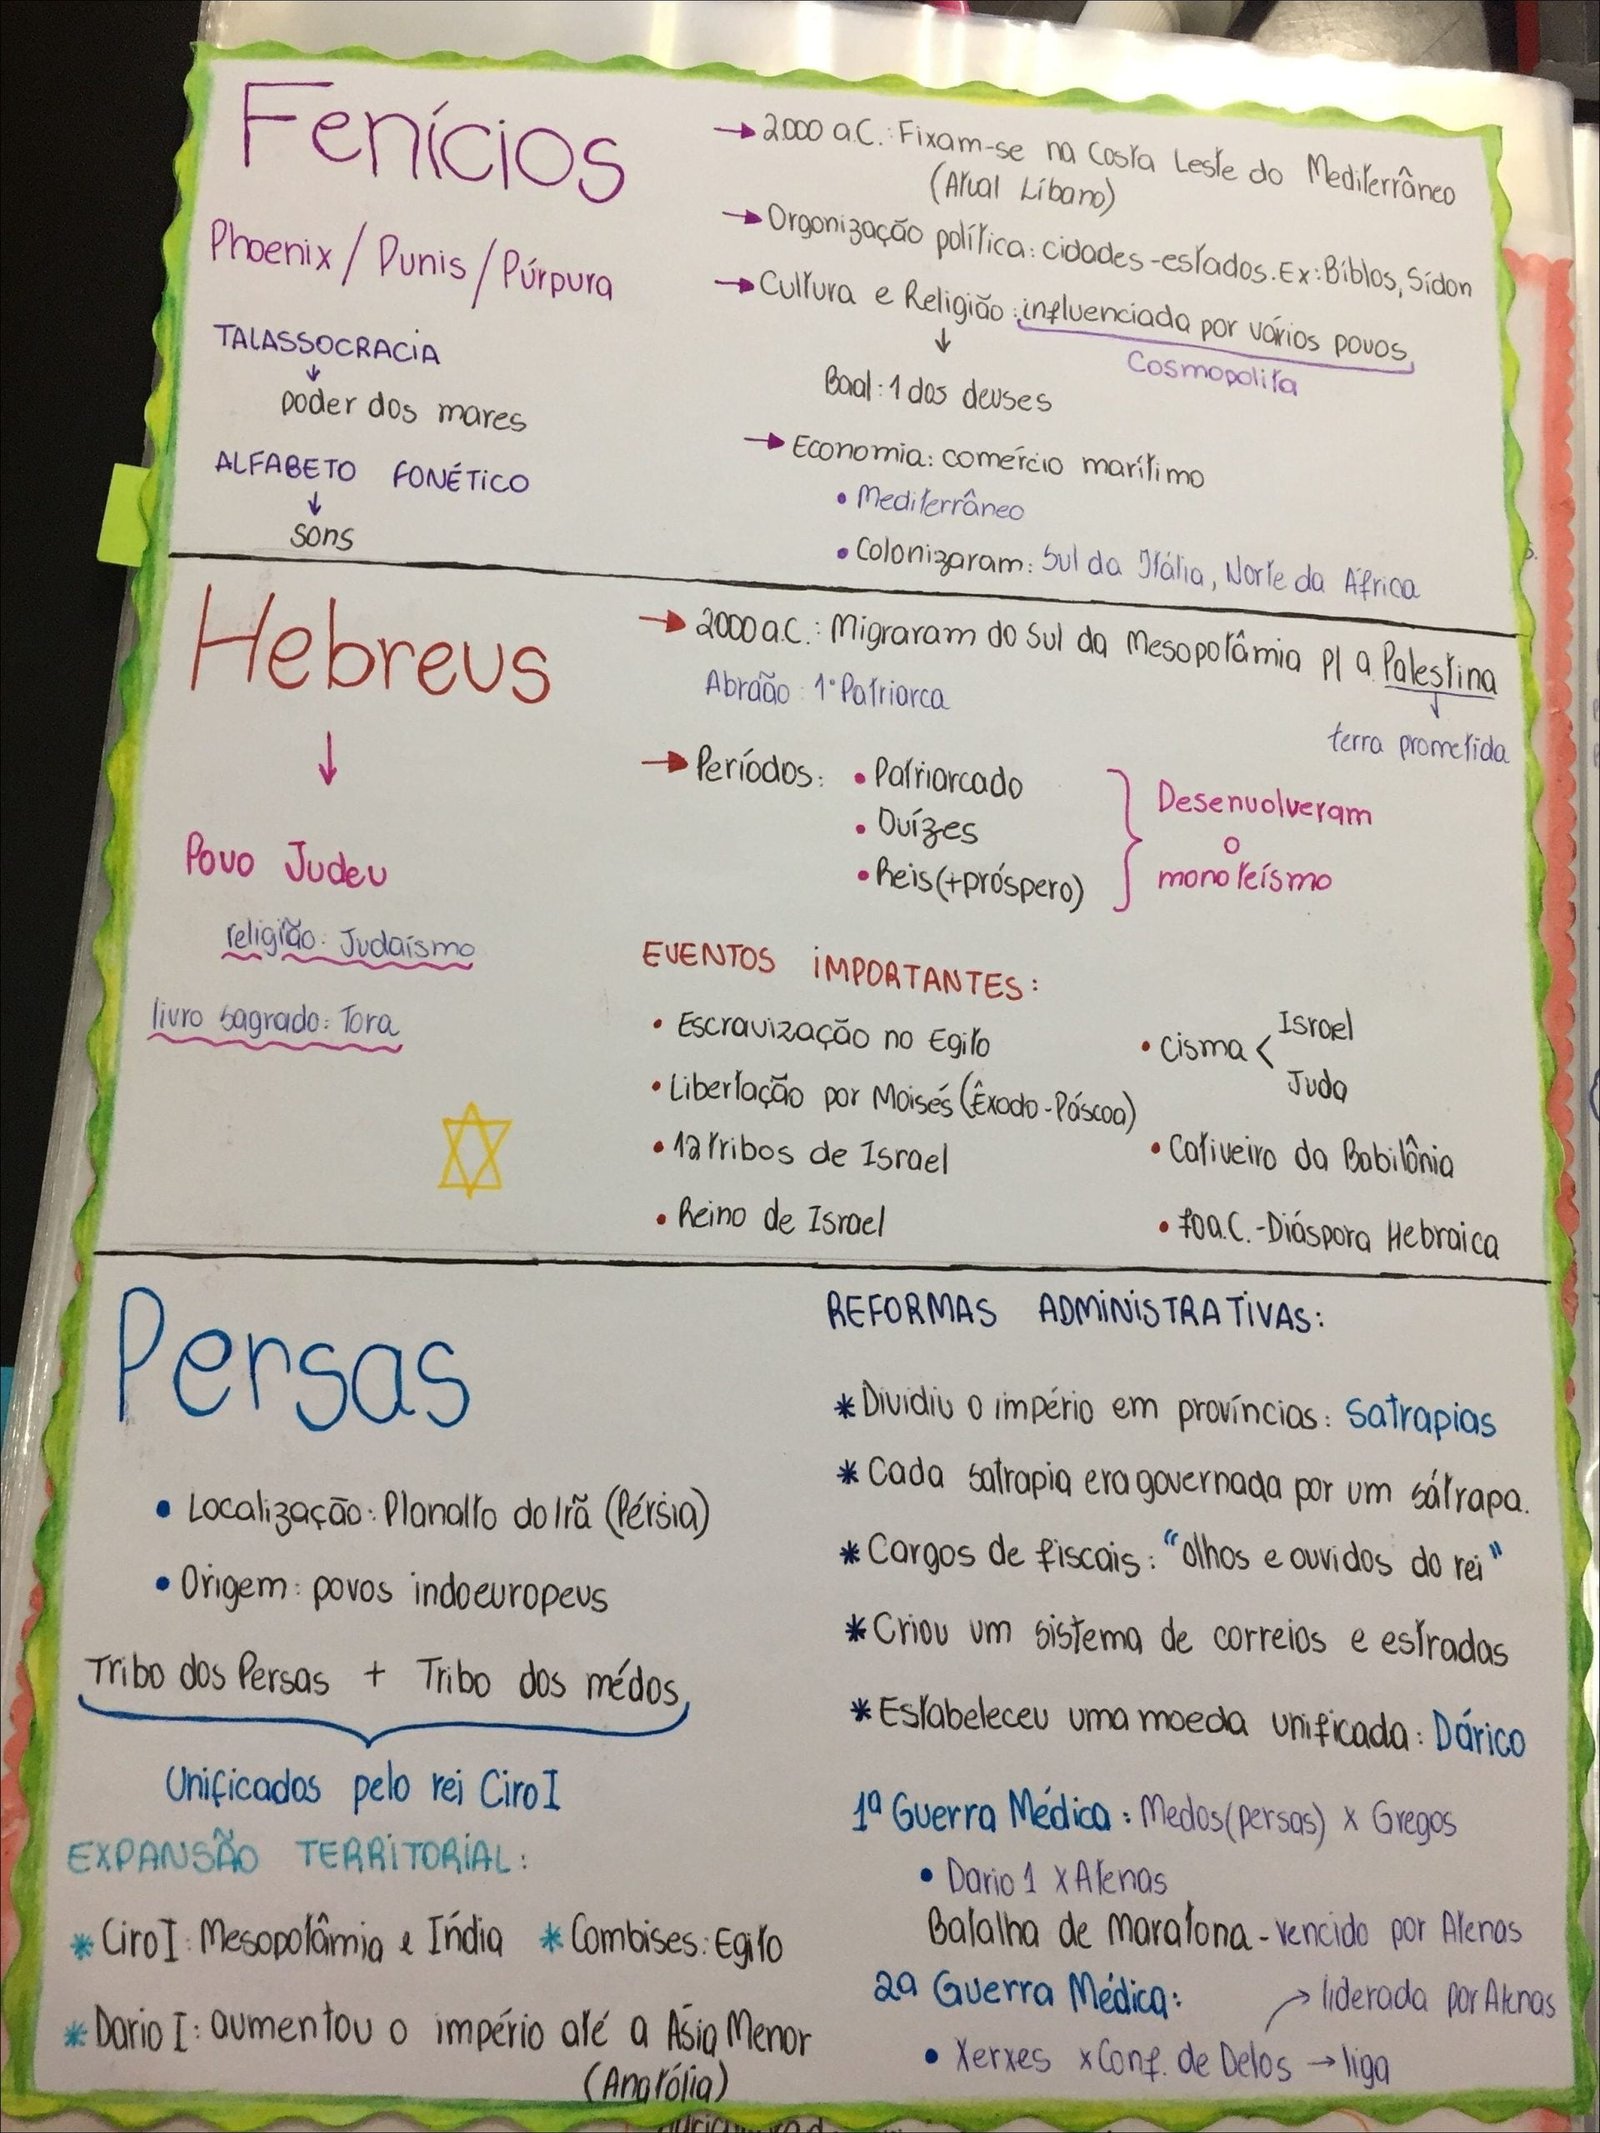 Fenícios
Phoenix / Punis / Púrpura
TALASSOCRACIA
poder dos mares
ALFABETO FONÉTICO
sons
2000 a.C.: Fixam-se na Costa Leste do Mediterrâneo
(Atual Líbano)
Organização política: cidades-estados. Ex: Biblos, Sídon
Cultura e Religião: influenciada por vários povos
Cosmopolita
Baal: 1 dos deuses
Economia: comércio marítimo
• Mediterrâneo
• Colonizaram: Sul da Itália, Norte da África
Hebreus
Povo Judeu
religião: Judaísmo
livro sagrado: Tora
2000 a.C.: Migraram do Sul da Mesopotâmia p/ a Palestina
Abraão: 1º Patriarca
terra prometida
Períodos: • Patriarcado
• Ouízes
• Reis (+próspero)
Desenvolveram
o
monoteísmo
EVENTOS IMPORTANTES:
• Escravização no Egito
• Libertação por Moisés (Êxodo-Páscoa)
• 12 tribos de Israel
• Reino de Israel
• Cisma < Israel
Juda
• Cativeiro da Babilônia
• 70 a.C. - Diáspora Hebraica
Persas
• Localização: Planalto do Irã (Pérsia)
• Origem: povos indoeuropeus
Tribo dos Persas + Tribo dos médos
Unificados pelo rei Ciro I
EXPANSÃO TERRITORIAL:
* Ciro I: Mesopotâmia e Índia * Combises: Egito
* Dario I: aumentou o império até a Ásia Menor
(Anatólia)
REFORMAS ADMINISTRATIVAS:
* Dividiu o império em províncias: Satrapias
* Cada satrapia era governada por um sátrapa.
* Cargos de fiscais: "olhos e ouvidos do rei"
* Criou um sistema de correios e estradas
* Estabeleceu uma moeda unificada: Dárico
1ª Guerra Médica: Medos (persas) x Gregos
• Dario 1 x Atenas
Batalha de Maratona - vencido por Atenas
2ª Guerra Médica:
liderada por Atenas
• Xerxes x Conf. de Delos → liga